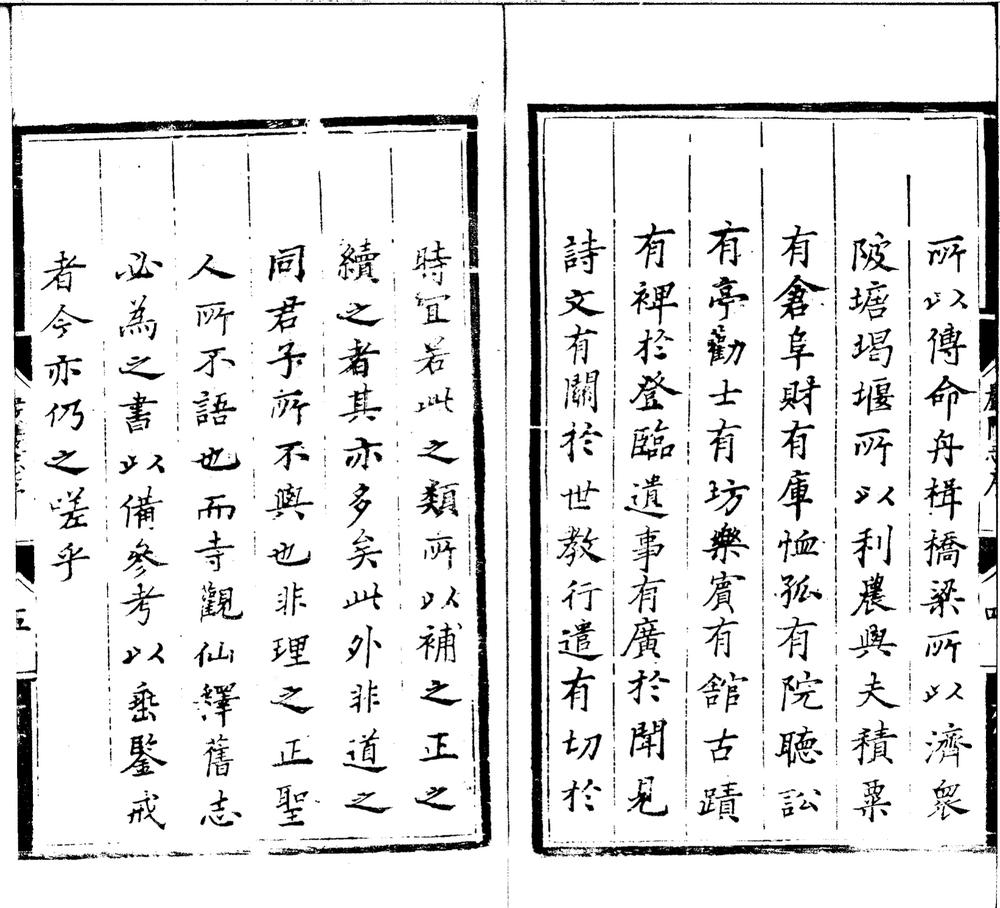 所以傳命舟楫橋梁所以濟衆
陂塘堨堰所以利農與夫積粟
有倉阜財有庫恤孤有院聽訟
有亭勸士有坊樂賓有舘古蹟
有裨於登臨遺事有廣於聞見
詩文有關於世教行遣有切於
時宜若此之類所以補之正之
續之者其亦多矣此外非道之
同君子所不與也非理之正聖
人所不語也而寺觀仙繹舊志
必為之書以備參考以垂鑒戒
者今亦仍之嗟乎
四
五